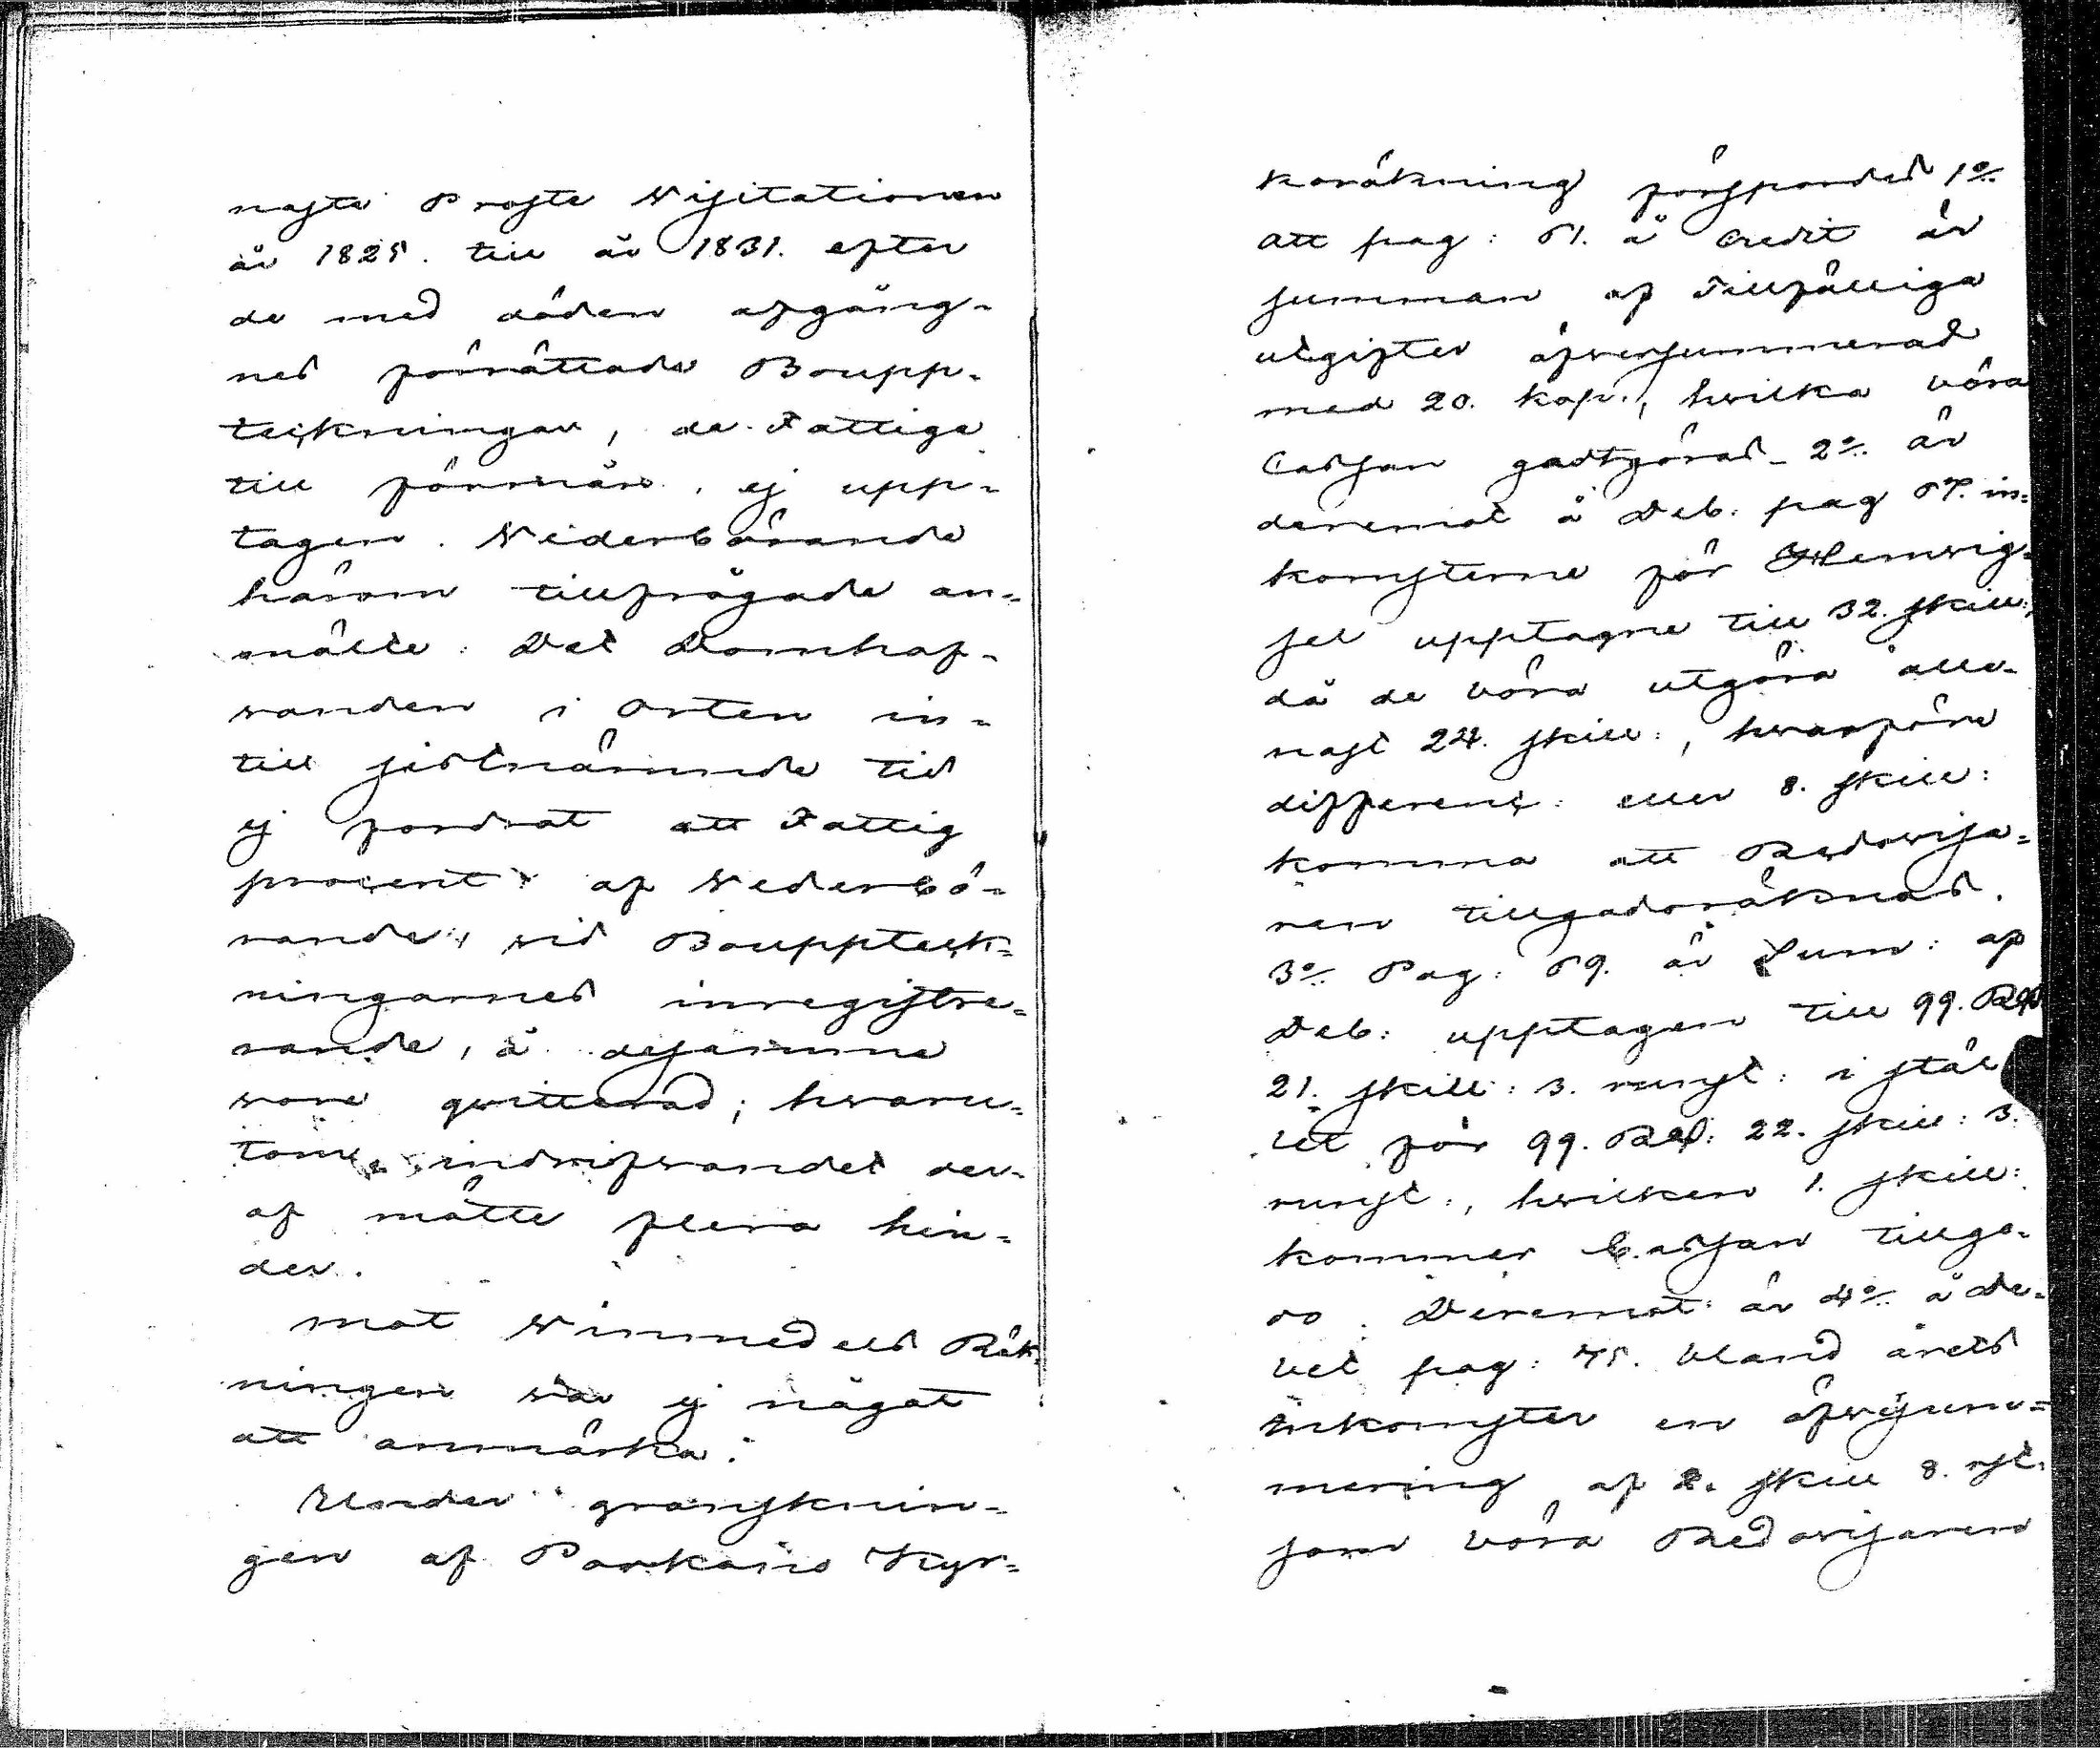 nasta Proste Visitationen
år 1825. till år 1831. efter
de med döden afgång-
nes förrättade Boupp-
teckningar, de Fattige
till förmån, ej upp-
tagen. Vederbörande
härom tillfrågade an-
mälte: Det Domhaf-
vanden i Orten in-
till sistnämnde tid
ej fordrat att Fattig
procent af Vederbö-
rande, vid Boupptek-
ningarnes inregistre-
rande, å desamma
vore qvitterad; hvaru-
tom, indrifvandet der-
af mötte flera hin-
der.
Mot Vinmedels Räk-
ningen var ej något
att anmärka.
Under gransknin-
gen af Parkano Kyr-
koräkning förspordes 1o/.
att pag: 51. å Credit är
summan af Tillfälliga
utgifter öfversummerad
med 20. kop., hvilka böra
Cassan godtgöras. 2o/. är
deremot å Deb. pag 57. in-
komsterne för
sel upptagne till 32. skill:,
då de böra utgöra alle-
nast 24. skill:, hvarföre
differens: eller 8. skill:
komma att Redovisa-
ren tillgodoräknas.
3o/. Pag: 59. är Sum: af
Deb: upptagen till 99. Rd
21. skill: 3. runst: i stäl
let för 99. Rd: 22. skill: 3.
runst:, hvilken 1. skill:
kommer Cassan tillgo-
do. Deremot är 4o/. å De-
bet pag: 75. bland årets
inkomster en öfversum-
mering af 2. skill 8. rst.
som böra Redovisaren